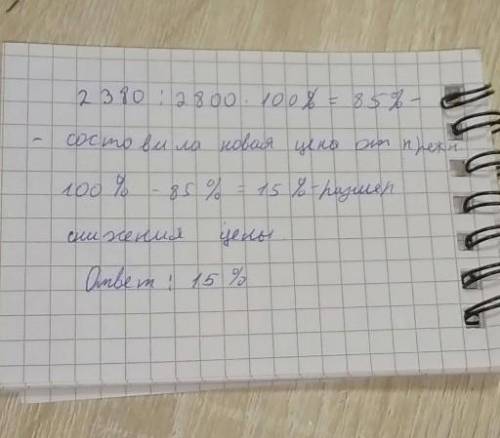 2380 : 2800 · 100% = 85% -
- составила новая цена от прежн
100% - 85% = 15% - размер
снижения цены
Ответ: 15%